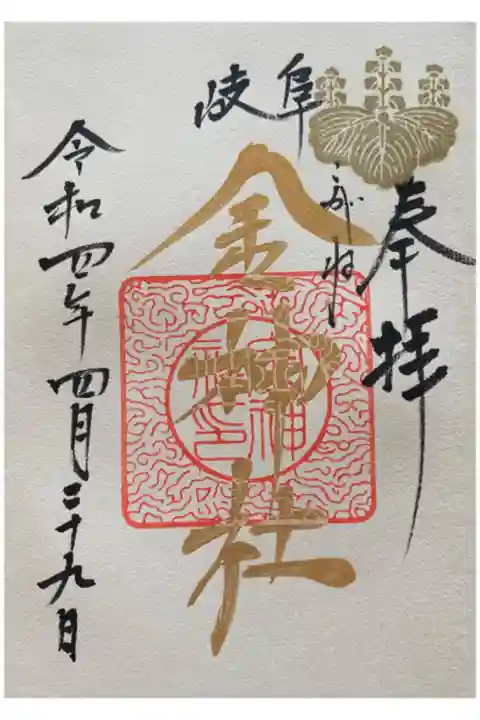 岐阜
奉拝
こがね
金神社
令和四年四月二十九日